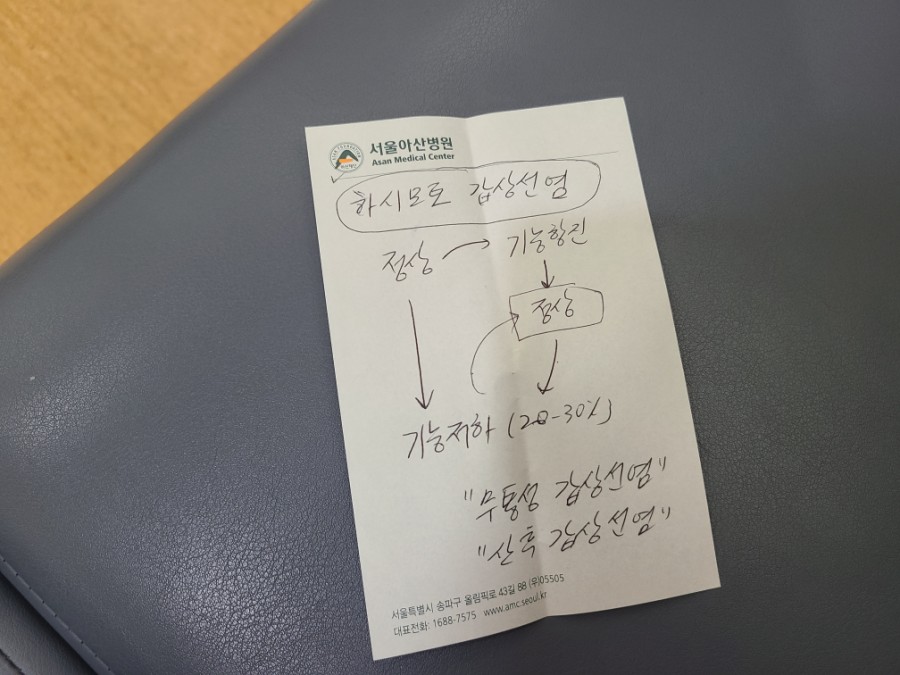 서울아산병원
Asan Medical Center
하시모토 갑상선염
정상 → 기능항진
↓
정상
↓ ↓
기능저하 (20-30%)
"무통성 갑상선염"
"산후 갑상선염"
서울특별시 송파구 올림픽로 43길 88 (우)05505
대표전화: 1688-7575 www.amc.seoul.kr